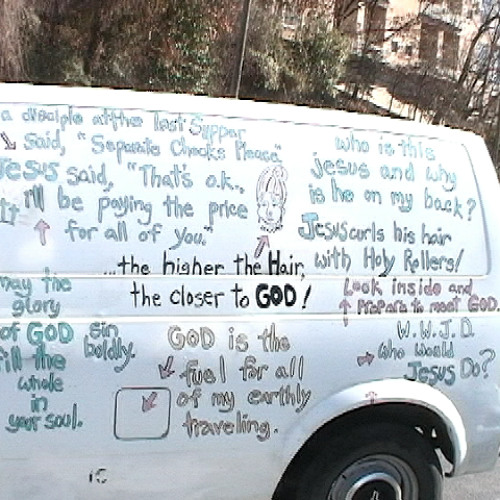 a disciple at the last Supper
said, "Separate Checks Please."
Jesus said, "That's o.k.,
I'll be paying the price
for all of you."
It
who is this
jesus and why
is he on my back?
Jesus curls his hair
with Holy Rollers!
...the higher the Hair,
the closer to GOD!
Look inside and
prepare to meet GOD
may the
glory
of GOD
fill the
whole
in
your soul.
Sin
boldly.
GOD is the
fuel for all
of my earthly
traveling.
W.W.J.D.
Who would
Jesus Do?